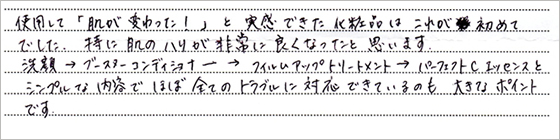 使用して「肌が変わった！」と実感できた化粧品はこれが初めて
でした。特に肌のハリが非常に良くなったと思います。
洗顔→ブースターコンディショナー→フィルムアップトリートメント→パーフェクトCエッセンスと
シンプルな内容でほぼ全てのトラブルに対応できているのも大きなポイント
です。